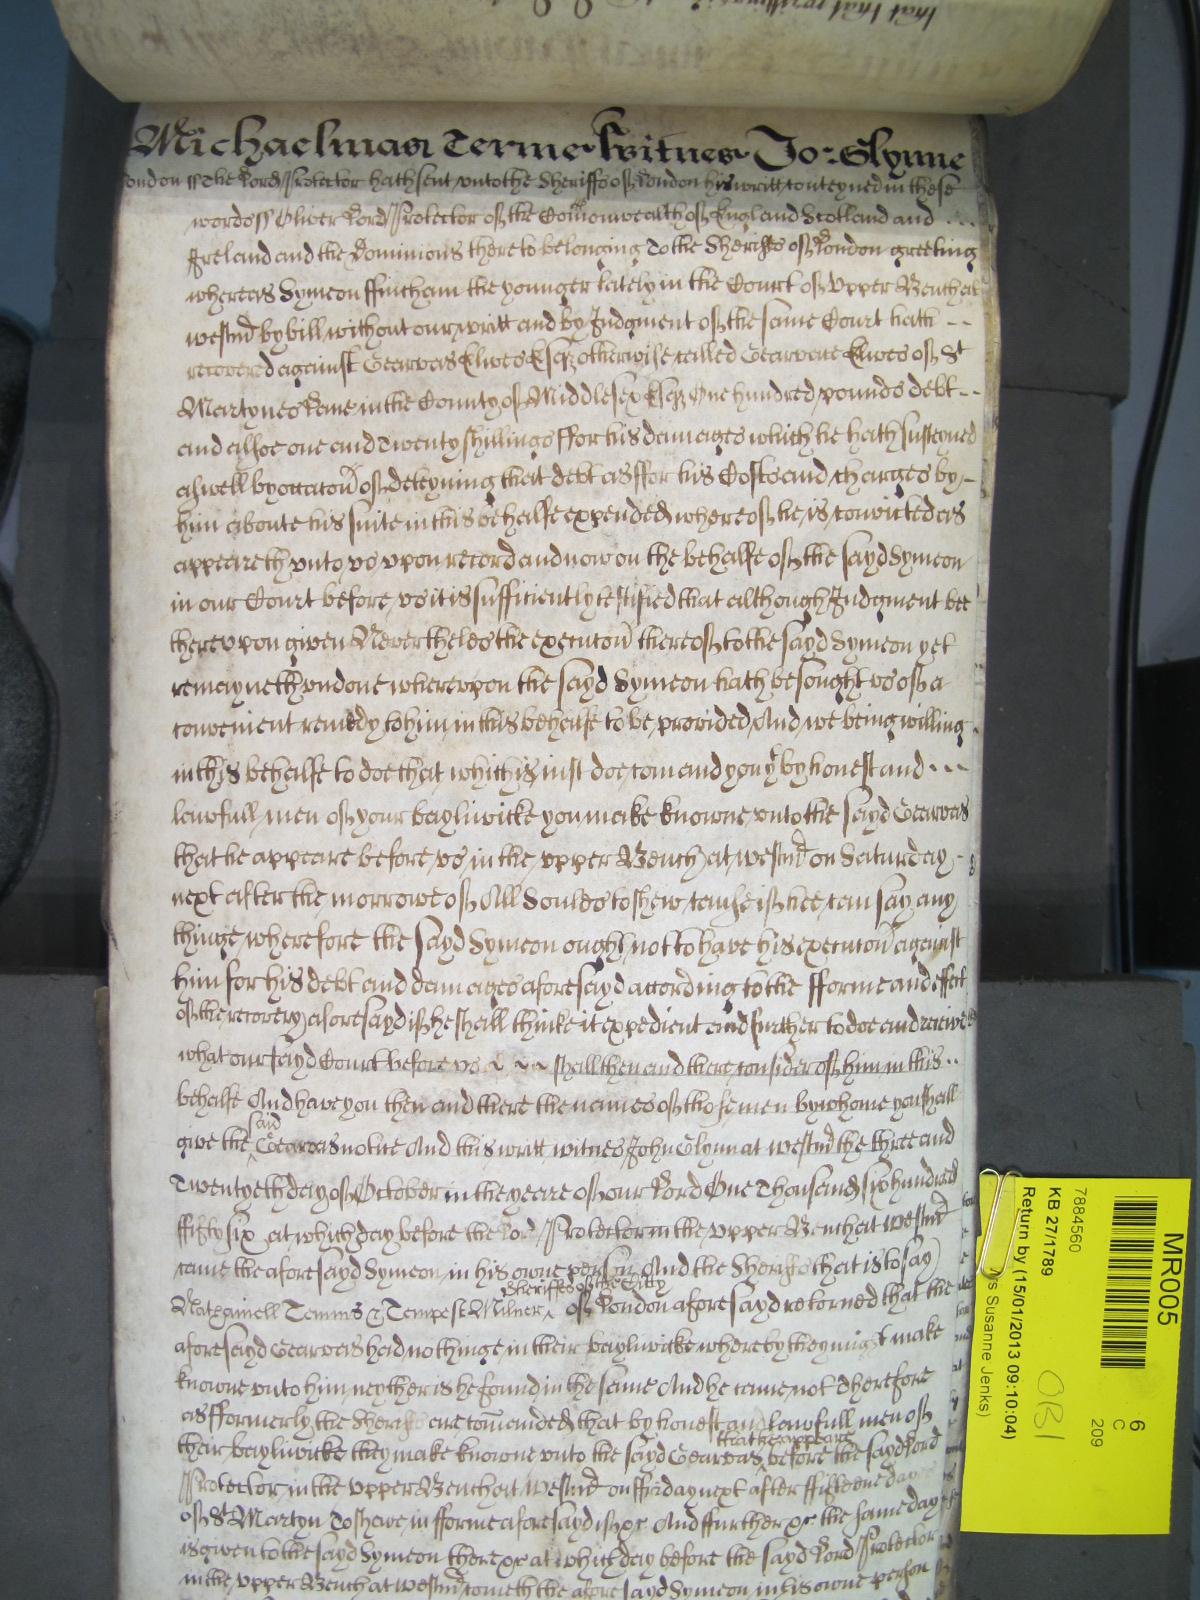 Michaelmas Terme Witnes Jo: Glynne
London ss The Lord Protector hath sent unto the Sheriffs of London his writt conteyned in these
wordes ss Oliver Lord Protector of the Comonwealth of England Scotland and
Ireland and the Dominions thereto belonging To the Sheriffs of London greeting
whereas Symeon ffincham the younger lately in the Court of Upper Bench att
westmr by bill without our writt and by Judgment of the same Court hath
recovered against Gearvas Elwes Esqr otherwise called Gearvase Elwes of St
Martynes Lane in the County of Middlesex Esqr One hundred pounds debt
and alsoe one and Twenty shillings ffor his damages which he hath susteyned
aswell by occacon of deteyning that debt as ffor his Costs and charges by
him about his suite in this behalfe expended whereof he is convicted as
appeareth unto us upon record and now on the behalfe of the sayd Symeon
in our Court before us it is sufficiently testified that although Judgment bee
thereupon given Neverthelesse the execucon thereof to the sayd Symeon yet
remayneth undone whereupon the sayd Symeon hath besought us of a
convenient remedy to him in this behalfe to be provided And we being willing
in this behalfe to doe that which is iust doe comand you yt by honest and
lawfull men of your bayliwicke you make knowne unto the sayd Gearvas
that he appeare before us in the upper Bench at westmr on Saturday
next after the morrowe of All Soules to shew cause if hee can say any
thinge wherefore the sayd Symeon ought not to have his execucon against
him for his debt and damages aforesayd according to the fforme and effect
of the recovery aforesayd if he shall thinke it expedient and further to doe and receive
what our sayd Court before us shall then and there consider of him in this
behalfe And have you then and there the names of those men by whome you shall
give the said Gearvas notice And this writt witnes John Glynn at westmr the three and
Twentyeth day of October in the yeare of our Lord One Thousand six hundred
ffifty six at which day before the Lord Protector in the upper Bench at westmr
came the aforesayd Symeon in his owne person And the Sheriffs that is to say
Sheriffes of the Citty
Nathaniell Temms & Tempest Milner of London aforesayd retorned that the
aforesayd Gearvas had nothinge in their bayliwicke whereby they might make
knowne unto him neyther is he found in the same And he came not Therefore
as fformerly the Sheriffs are comanded that by honest and lawfull men of
that he appeare
their bayliwicke they make knowne unto the sayd Gearvas before the sayd Lord
Protector in the upper Bench at Westmr on ffriday next after ffifteene dayes
of St Martyn To shewe in fforme aforesayd if &c And ffurther &c the same day
is given to the sayd Symeon there &c at which day before the sayd Lord Protector
in the upper Bench at westmr cometh the aforesayd Symeon in his owne person
MR005
6
C
209
7884560
KB 27/1789
Return by (15/01/2013 09:10:04)
Susanne Jenks)